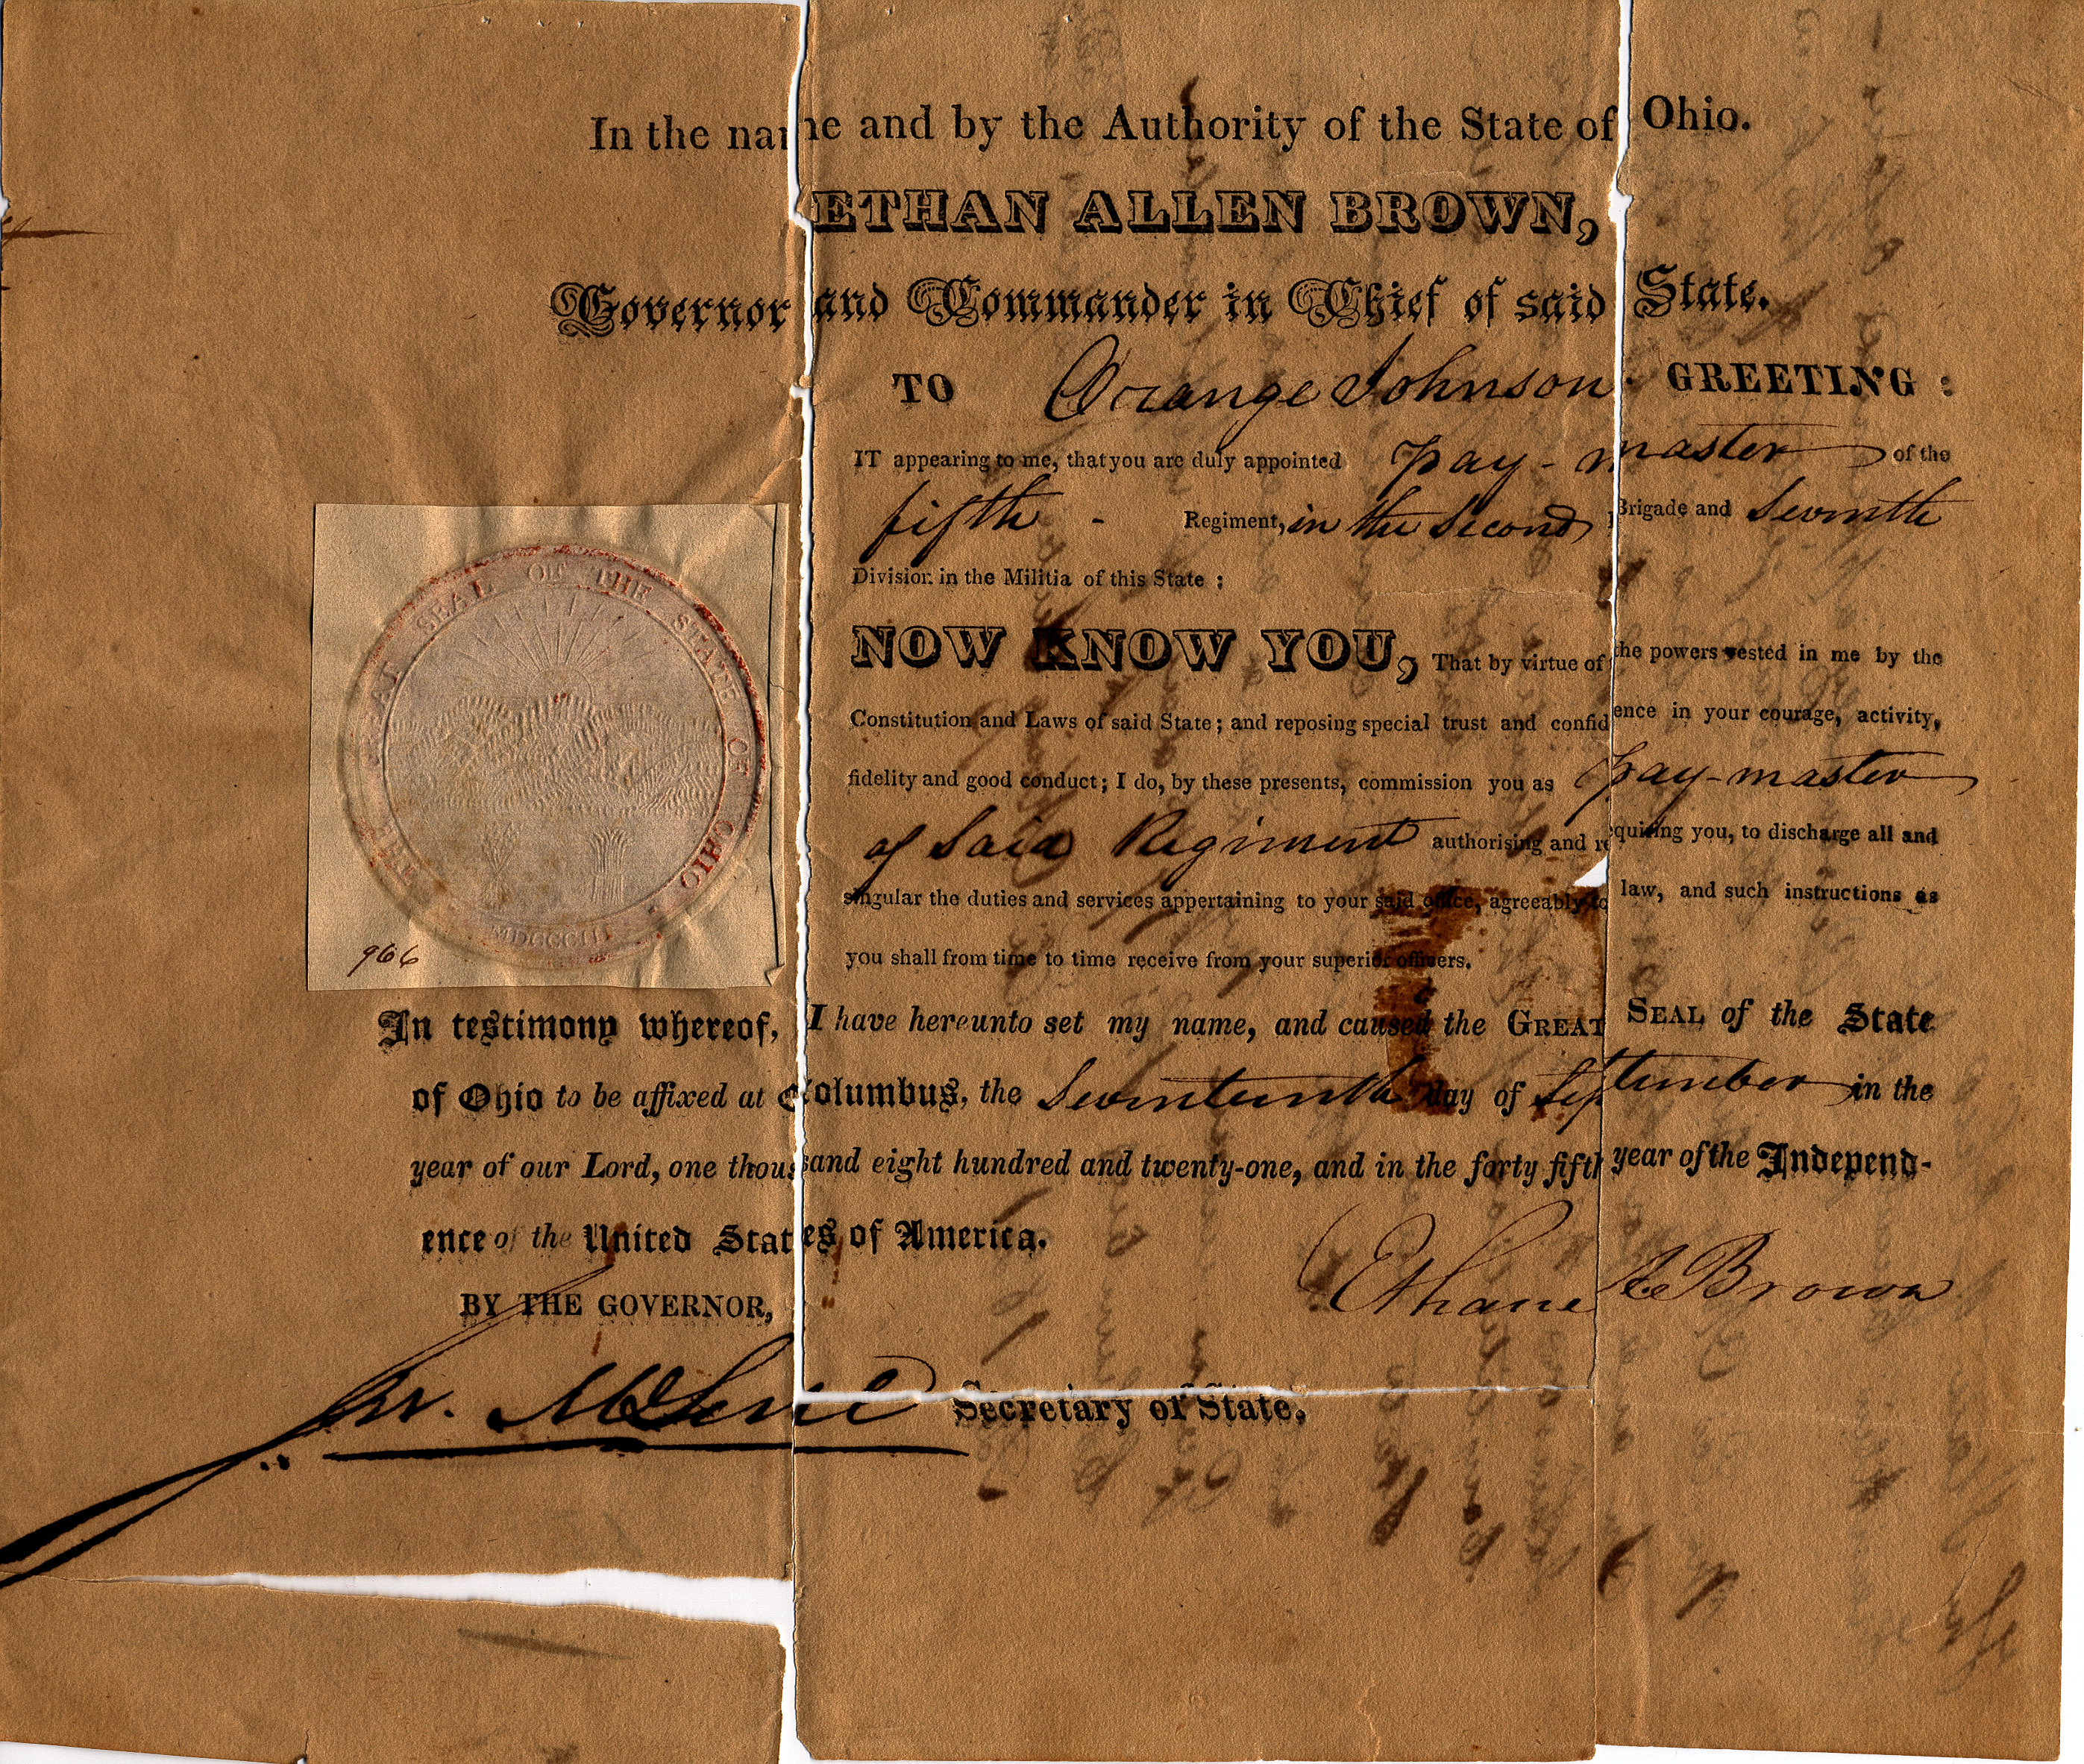 In the name and by the Authority of the State of Ohio.
ETHAN ALLEN BROWN,
Governor and Commander in Chief of said State.
TO Orange Johnson GREETING :
IT appearing to me, that you are duly appointed pay-master of the
fifth - Regiment, in the second Brigade and Seventh
Division in the Militia of this State :
NOW KNOW YOU, That by virtue of the powers vested in me by the
Constitution and Laws of said State ; and reposing special trust and confidence in your courage, activity,
fidelity and good conduct ; I do, by these presents, commission you as pay-master
of said Regiment authorising and requiring you, to discharge all and
singular the duties and services appertaining to your said office, agreeably to law, and such instructions as
you shall from time to time receive from your superior officers.
THE GREAT SEAL OF THE STATE OF OHIO
MDCCCII
966
In testimony whereof, I have hereunto set my name, and caused the GREAT SEAL of the State
of Ohio to be affixed at Columbus, the Seventeenth day of September in the
year of our Lord, one thousand eight hundred and twenty-one, and in the forty fifth year of the Independ-
ence of the United States of America.
Ethan A Brown
BY THE GOVERNOR,
Jer. McLene Secretary of State.